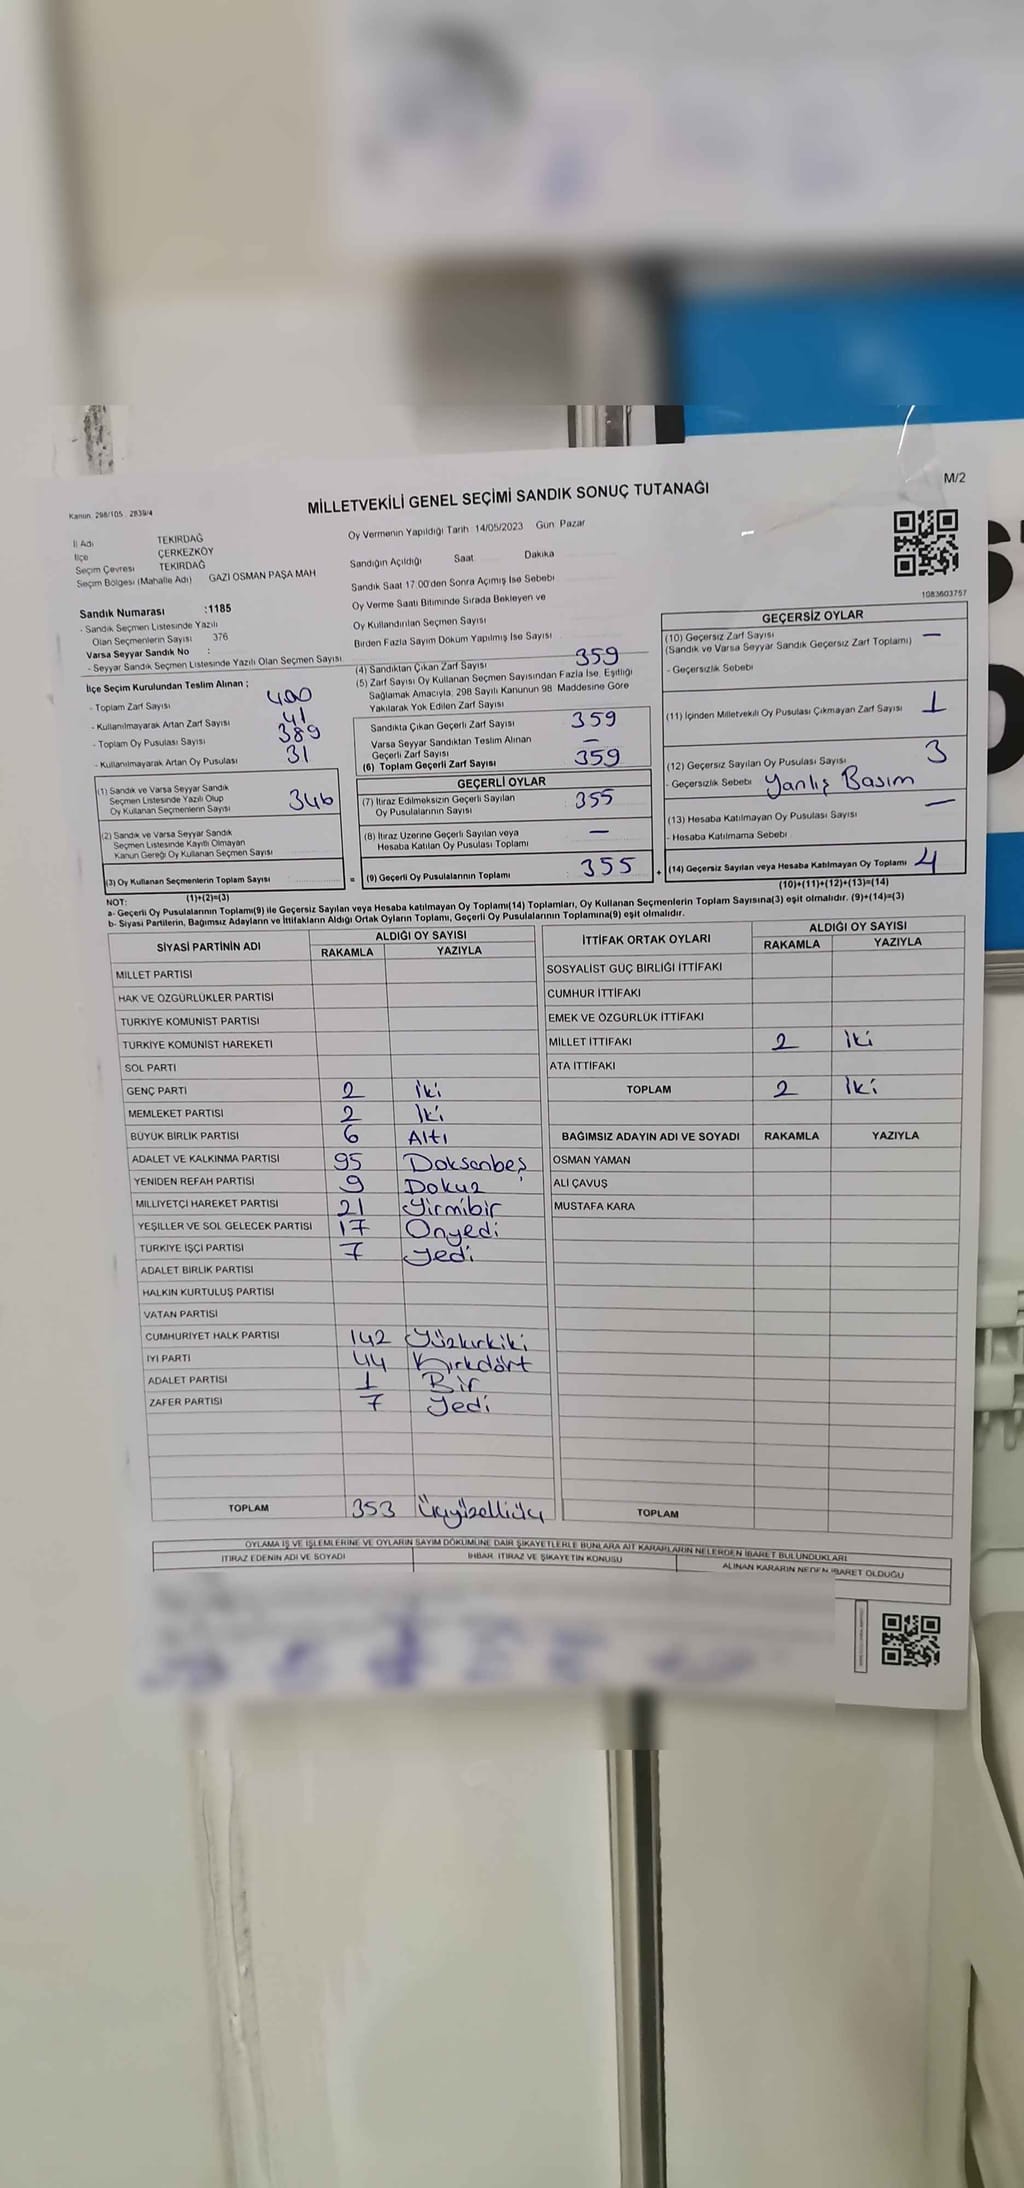 M/2
Kanun: 298/105 , 2839/4
MİLLETVEKİLİ GENEL SEÇİMİ SANDIK SONUÇ TUTANAĞI
İl Adı TEKİRDAĞ
İlçe ÇERKEZKÖY
Seçim Çevresi TEKİRDAĞ
Seçim Bölgesi (Mahalle Adı) GAZİ OSMAN PAŞA MAH
Sandık Numarası :1185
- Sandık Seçmen Listesinde Yazılı
Olan Seçmenlerin Sayısı 376
Varsa Seyyar Sandık No :
- Seyyar Sandık Seçmen Listesinde Yazılı Olan Seçmen Sayısı
İlçe Seçim Kurulundan Teslim Alınan ;
- Toplam Zarf Sayısı 400
- Kullanılmayarak Artan Zarf Sayısı 41
- Toplam Oy Pusulası Sayısı 389
- Kullanılmayarak Artan Oy Pusulası 31
(1) Sandık ve Varsa Seyyar Sandık
Seçmen Listesinde Yazılı Olup
Oy Kullanan Seçmenlerin Sayısı 346
(2) Sandık ve Varsa Seyyar Sandık
Seçmen Listesinde Kayıtlı Olmayan
Kanun Gereği Oy Kullanan Seçmen Sayısı
(3) Oy Kullanan Seçmenlerin Toplam Sayısı
(1)+(2)=(3)
Oy Vermenin Yapıldığı Tarih : 14/05/2023 Gün: Pazar
Sandığın Açıldığı Saat Dakika
Sandık Saat 17.00'den Sonra Açımış İse Sebebi
Oy Verme Saati Bitiminde Sırada Bekleyen ve
Oy Kullandırılan Seçmen Sayısı
Birden Fazla Sayım Döküm Yapılmış İse Sayısı
(4) Sandıktan Çıkan Zarf Sayısı 359
(5) Zarf Sayısı Oy Kullanan Seçmen Sayısından Fazla İse, Eşitliği
Sağlamak Amacıyla, 298 Sayılı Kanunun 98. Maddesine Göre
Yakılarak Yok Edilen Zarf Sayısı
Sandıkta Çıkan Geçerli Zarf Sayısı 359
Varsa Seyyar Sandıktan Teslim Alınan
Geçerli Zarf Sayısı —
(6) Toplam Geçerli Zarf Sayısı 359
GEÇERLİ OYLAR
(7) İtiraz Edilmeksizin Geçerli Sayılan
Oy Pusulalarının Sayısı : 355
(8) İtiraz Üzerine Geçerli Sayılan veya
Hesaba Katılan Oy Pusulası Toplamı : —
= (9) Geçerli Oy Pusulalarının Toplamı : 355 +
1083603757
GEÇERSİZ OYLAR
(10) Geçersiz Zarf Sayısı
(Sandık ve Varsa Seyyar Sandık Geçersiz Zarf Toplamı) —
- Geçersizlik Sebebi
(11) İçinden Milletvekili Oy Pusulası Çıkmayan Zarf Sayısı 1
(12) Geçersiz Sayılan Oy Pusulası Sayısı 3
- Geçersizlik Sebebi Yanlış Basım
(13) Hesaba Katılmayan Oy Pusulası Sayısı —
- Hesaba Katılmama Sebebi
(14) Geçersiz Sayılan veya Hesaba Katılmayan Oy Toplamı 4
(10)+(11)+(12)+(13)=(14)
NOT:
a- Geçerli Oy Pusulalarının Toplamı(9) ile Geçersiz Sayılan veya Hesaba katılmayan Oy Toplamı(14) Toplamları, Oy Kullanan Seçmenlerin Toplam Sayısına(3) eşit olmalıdır. (9)+(14)=(3)
b- Siyasi Partilerin, Bağımsız Adayların ve İttifakların Aldığı Ortak Oyların Toplamı, Geçerli Oy Pusulalarının Toplamına(9) eşit olmalıdır.
SİYASİ PARTİNİN ADI ALDIĞI OY SAYISI
RAKAMLA YAZIYLA
MİLLET PARTİSİ
HAK VE ÖZGÜRLÜKLER PARTİSİ
TÜRKİYE KOMÜNİST PARTİSİ
TÜRKİYE KOMÜNİST HAREKETİ
SOL PARTİ
GENÇ PARTİ 2 İki
MEMLEKET PARTİSİ 2 İki
BÜYÜK BİRLİK PARTİSİ 6 Altı
ADALET VE KALKINMA PARTİSİ 95 Doksanbeş
YENİDEN REFAH PARTİSİ 9 Dokuz
MİLLİYETÇİ HAREKET PARTİSİ 21 Yirmibir
YEŞİLLER VE SOL GELECEK PARTİSİ 17 Onyedi
TÜRKİYE İŞÇİ PARTİSİ 7 Yedi
ADALET BİRLİK PARTİSİ
HALKIN KURTULUŞ PARTİSİ
VATAN PARTİSİ
CUMHURİYET HALK PARTİSİ 142 Yüzkırkiki
İYİ PARTİ 44 Kırkdört
ADALET PARTİSİ 1 Bir
ZAFER PARTİSİ 7 Yedi
TOPLAM 353 Üçyüzelliüç
İTTİFAK ORTAK OYLARI ALDIĞI OY SAYISI
RAKAMLA YAZIYLA
SOSYALİST GÜÇ BİRLİĞİ İTTİFAKI
CUMHUR İTTİFAKI
EMEK VE ÖZGÜRLÜK İTTİFAKI
MİLLET İTTİFAKI 2 İki
ATA İTTİFAKI
TOPLAM 2 İki
BAĞIMSIZ ADAYIN ADI VE SOYADI RAKAMLA YAZIYLA
OSMAN YAMAN
ALİ ÇAVUŞ
MUSTAFA KARA
TOPLAM
OYLAMA İŞ VE İŞLEMLERİNE VE OYLARIN SAYIM DÖKÜMÜNE DAİR ŞİKAYETLERLE BUNLARA AİT KARARLARIN NELERDEN İBARET BULUNDUKLARI
İTİRAZ EDENİN ADI VE SOYADI İHBAR, İTİRAZ VE ŞİKAYETİN KONUSU ALINAN KARARIN NEDEN İBARET OLDUĞU